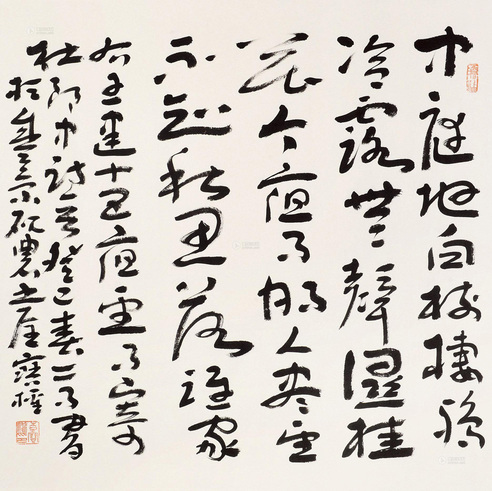 中庭地白樹棲鴉
冷露無聲濕桂
花今夜月明人盡望
不知秋思落誰家
右王建十五夜望月寄
杜郎中詩癸巳春二月書
於京硯農寶